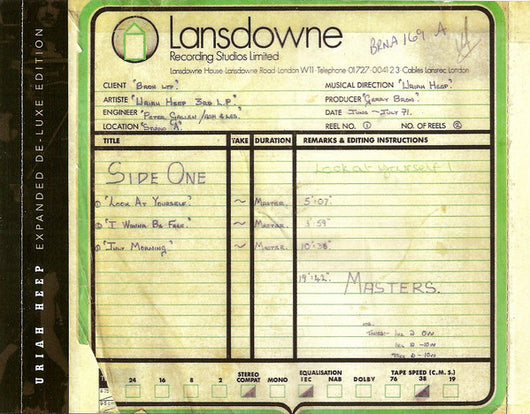 URIAH HEEP EXPANDED DE-LUXE EDITION
Lansdowne
Recording Studios Limited
BRNA 169 A
Lansdowne House · Lansdowne Road · London W11 · Telephone 01-727-0041 2 3 · Cables Lansrec London
CLIENT "BRON LTD." MUSICAL DIRECTION "URIAH HEEP."
ARTISTE "URIAH HEEP 3RD L.P." PRODUCER "GERRY BRON."
ENGINEER "PETER GALLEN / DATE JUNE - JULY 71.
LOCATION "STUDIO "A". REEL NO. 1 NO. OF REELS 2
TITLE TAKE DURATION REMARKS & EDITING INSTRUCTIONS
SIDE ONE Look at yourself
① "LOOK AT YOURSELF." ~ MASTER. 5'07"
② "I WANNA BE FREE." ~ MASTER. 3'59"
③ "JULY MORNING." ~ MASTER. 10'38"
19'42"
MASTERS.
STEREO COMPAT MONO EQUALISATION IEC NAB DOLBY TAPE SPEED (C.M.S.)
24 16 8 2 76 38 19